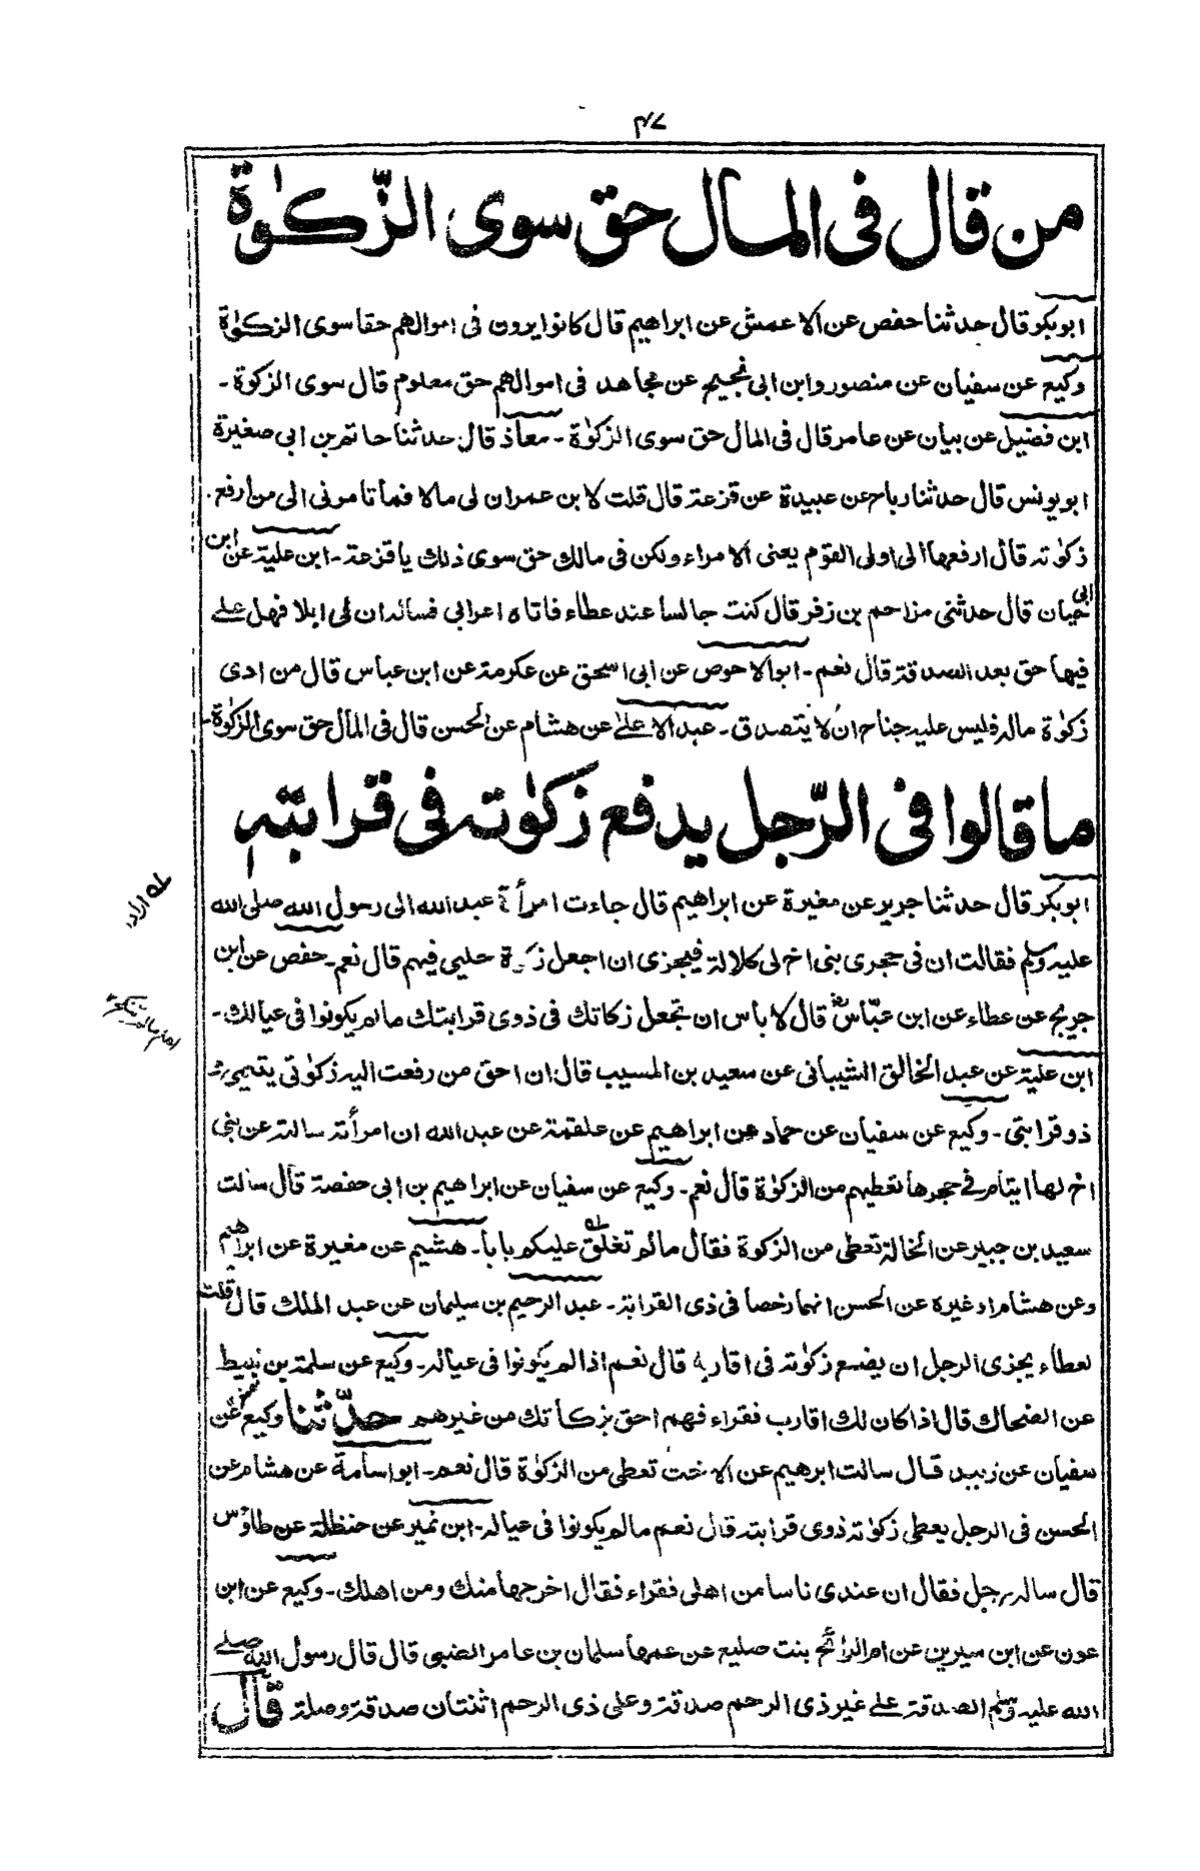 ٤٧
من قال فى المال حق سوى الزّكوٰة
ابوبكر قال حدثنا حفص عن الاعمش عن ابراهيم قال كانوا يرون فى اموالهم حقا سوى الزكوٰة
وكيع عن سفيان عن منصور وابن ابى نجيح عن مجاهد فى اموالهم حق معلوم قال سوى الزكوة ـ
ابن فضيل عن بيان عن عامر قال فى المال حق سوى الزكوٰة ـ معاذ قال حدثنا حاتم بن ابى صغيرة
ابو يونس قال حدثنا رباح عن عبيدة عن قزعة قال قلت لابن عمر ان لى مالا فما تامرنى الى من ارفع
زكوٰته قال ارفعها الى اولى القوم يعنى الامراء ولكن فى مالك حق سوى ذلك يا قزعة ـ ابن علية عن ابن
ابى حيان قال حدثنى مزاحم بن زفر قال كنت جالسا عند عطاء فاتاه اعرابى فسائله ان لى ابلا فهل على
فيها حق بعد الصدقة قال نعم ـ ابو الاحوص عن ابى اسحق عن عكرمة عن ابن عباس قال من ادى
زكوٰة ماله فليس عليه جناح ان لا يتصدق ـ عبد الاعلىٰ عن هشام عن الحسن قال فى المال حق سوى الزكوٰة ـ
ما قالوا فى الرّجل يدفع زكوٰته فى قرابته
ابوبكر قال حدثنا جرير عن مغيرة عن ابراهيم قال جاءت امرأة عبد الله الى رسول الله صلى الله
عليه وسلم فقالت ان فى حجرى بنى اخ لى كلالة فيجزى ان اجعل زكوة حليى فيهم قال نعم ـ حفص عن ابن
جريج عن عطاء عن ابن عبّاس رض قال لا باس ان تجعل زكاتك فى ذوى قرابتك ما لم يكونوا فى عيالك ـ
ابن علية عن عبد الخالق الشيبانى عن سعيد بن المسيب قال ان احق من رفعت اليه زكوٰتى يتيمى و
ذو قرابتى ـ وكيع عن سفيان عن حماد عن ابراهيم عن علقمة عن عبد الله ان امرأته سالته عن بنى
اخ لها ايتام فى حجرها تعطيهم من الزكوٰة قال نعم ـ وكيع عن سفيان عن ابراهيم بن ابى حفصة قال سالت
سعيد بن جبير عن الخالة تعطى من الزكوة فقال ما لم تغلق عليكم بابا ـ هشيم عن مغيرة عن ابراهيم
وعن هشام او غيره عن الحسن انهما رخصا فى ذى القرابة ـ عبد الرحيم بن سليمان عن عبد الملك قال قلت
لعطاء يجزى الرجل ان يضع زكوٰته فى اقاربه قال نعم اذا لم يكونوا فى عياله ـ وكيع عن سلمة بن نبيط
عن الضحاك قال اذا كان لك اقارب فقراء فهم احق بزكاتك من غيرهم حدّثنا وكيع عن
سفيان عن زبيد قال سالت ابرهيم عن الاخت تعطى من الزكوٰة قال نعم ـ ابو اسامة عن هشام عن
الحسن فى الرجل يعطى زكوٰته ذوى قرابته قال نعم ما لم يكونوا فى عياله ـ ابن نمير عن حنظلة عن طاؤس
قال ساله رجل فقال ان عندى ناسا من اهلى فقراء فقال اخرجها منك ومن اهلك ـ وكيع عن ابن
عون عن ابن سيرين عن ام الرائح بنت صليع عن عمها سلمان بن عامر الضبى قال قال رسول الله صلى
الله عليه وسلم الصدقة على غير ذى الرحم صدقة وعلى ذى الرحم اثنتان صدقة وصلة قال